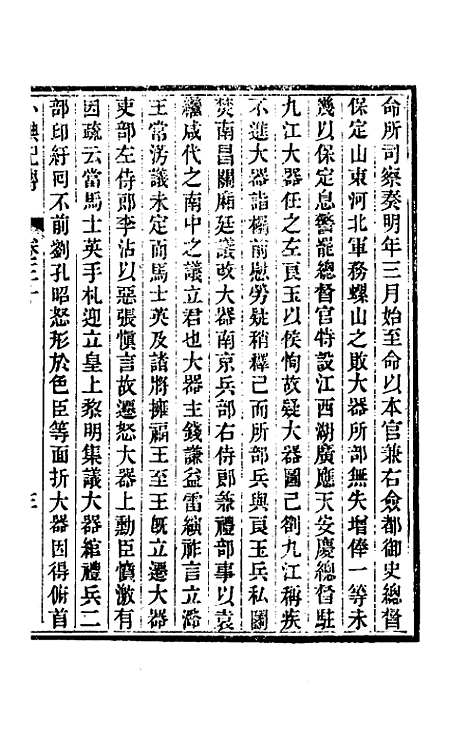 命所司察奏明年三月始至命以本官兼右僉都御史總督
保定山東河北軍務螺山之敗大器所部無失增俸一等未
幾以保定息警罷總督官特設江西湖廣應天安慶總督駐
九江大器任之左良玉以候恂故疑大器圖己劉九江稱疾
不進大器詣榻前慰勞疑稍釋已而所部兵與良玉兵私鬭
焚南昌關廂廷議改大器南京兵部右侍郎兼禮部事以袁
繼咸代之南中之議立君也大器主錢謙益雷縯祚言立潞
王常淓議未定而馬士英及諸將擁福王至王旣立遷大器
吏部左侍郎李沾以惡張愼言故遷怒大器上勳臣憤激有
因疏云當馬士英手札迎立皇上黎明集議大器綰禮兵二
部印紆囘不前劉孔昭怒形於色臣等面折大器因得俯首
小腆紀傳
卷三十
三